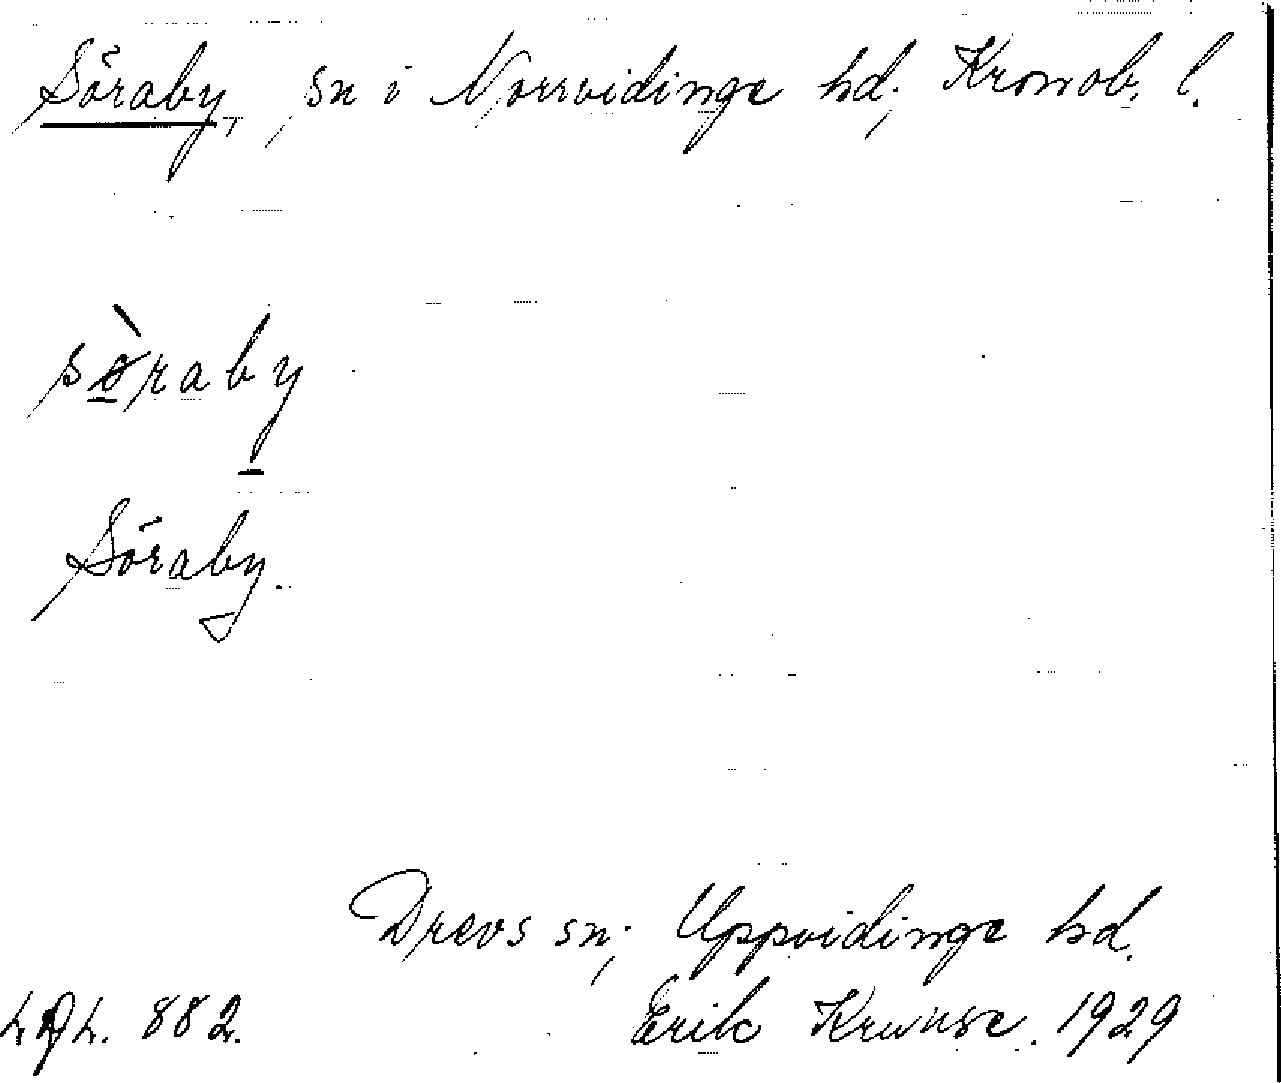 Söraby, sn i Norrvidinge hd. Kronob. l.
sø̀raby
Söraby.
Drevs sn; Uppvidinge hd.
882. Erik Kruuse. 1929